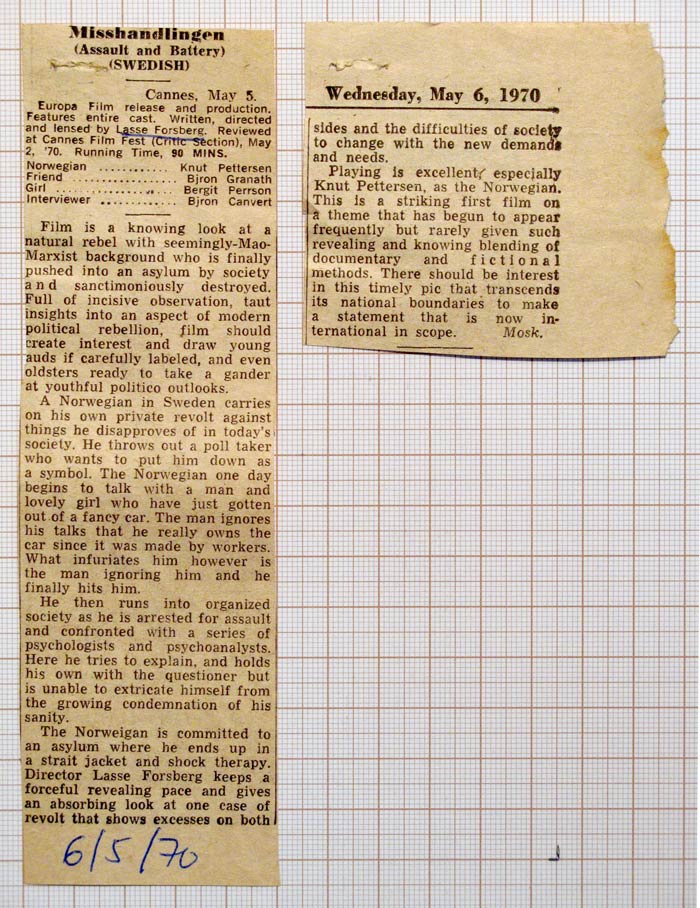 Misshandlingen
(Assault and Battery)
(SWEDISH)
Cannes, May 5.
Europa Film release and production.
Features entire cast. Written, directed
and lensed by Lasse Forsberg. Reviewed
at Cannes Film Fest (Critic Section), May
2, '70. Running Time, 90 MINS.
Norwegian ............ Knut Pettersen
Friend ................. Bjron Granath
Girl .................. Bergit Perrson
Interviewer ........... Bjron Canvert
Film is a knowing look at a
natural rebel with seemingly-Mao-
Marxist background who is finally
pushed into an asylum by society
and sanctimoniously destroyed.
Full of incisive observation, taut
insights into an aspect of modern
political rebellion, film should
create interest and draw young
auds if carefully labeled, and even
oldsters ready to take a gander
at youthful politico outlooks.
A Norwegian in Sweden carries
on his own private revolt against
things he disapproves of in today's
society. He throws out a poll taker
who wants to put him down as
a symbol. The Norwegian one day
begins to talk with a man and
lovely girl who have just gotten
out of a fancy car. The man ignores
his talks that he really owns the
car since it was made by workers.
What infuriates him however is
the man ignoring him and he
finally hits him.
He then runs into organized
society as he is arrested for assault
and confronted with a series of
psychologists and psychoanalysts.
Here he tries to explain, and holds
his own with the questioner but
is unable to extricate himself from
the growing condemnation of his
sanity.
The Norweigan is committed to
an asylum where he ends up in
a strait jacket and shock therapy.
Director Lasse Forsberg keeps a
forceful revealing pace and gives
an absorbing look at one case of
revolt that shows excesses on both
6/5/70
Wednesday, May 6, 1970
sides and the difficulties of society
to change with the new demands
and needs.
Playing is excellent, especially
Knut Pettersen, as the Norwegian.
This is a striking first film on
a theme that has begun to appear
frequently but rarely given such
revealing and knowing blending of
documentary and fictional
methods. There should be interest
in this timely pic that transcends
its national boundaries to make
a statement that is now in-
ternational in scope. Mosk.